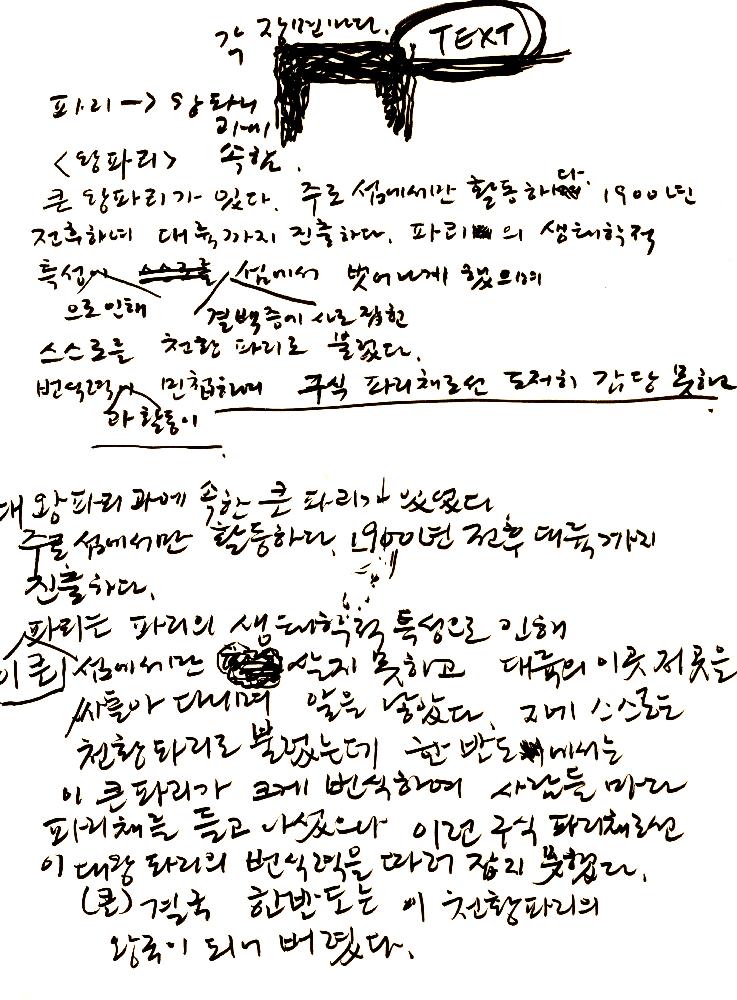 각 장면마다.
TEXT
파리 -> 왕파리
과에
<왕파리> 속함.
큰 왕파리가 있다. 주로 섬에서만 활동하다. 1900년
전후하여 대륙까지 진출하다. 파리의 생태학적
특성이 스스로를 섬에서 벗어나게 했으며
으로 인해 결백증에 사로잡힌
스스로를 천황 파리로 불렀다.
번식력이 민첩하여 구식 파리채로선 도저히 감당 못하고
과 활동이
대왕파리과에 속한 큰 파리가 있었다.
주로 섬에서만 활동하다. 1900년 전후 대륙까지
진출하다.
파리는 파리의 생태학적 특성으로 인해
이 큰 섬에서만 살지 못하고 대륙의 이곳저곳을
싸돌아 다니며 알을 낳았다. 지네 스스로는
천황파리로 불렀는데 한반도에서는
이 큰파리가 크게 번식하여 사람들마다
파리채를 들고 나섰으나 이런 구식 파리채로선
이 대왕파리의 번식력을 따라 잡지 못했다.
(큰) 결국 한반도는 이 천황파리의
왕국이 되어 버렸다.